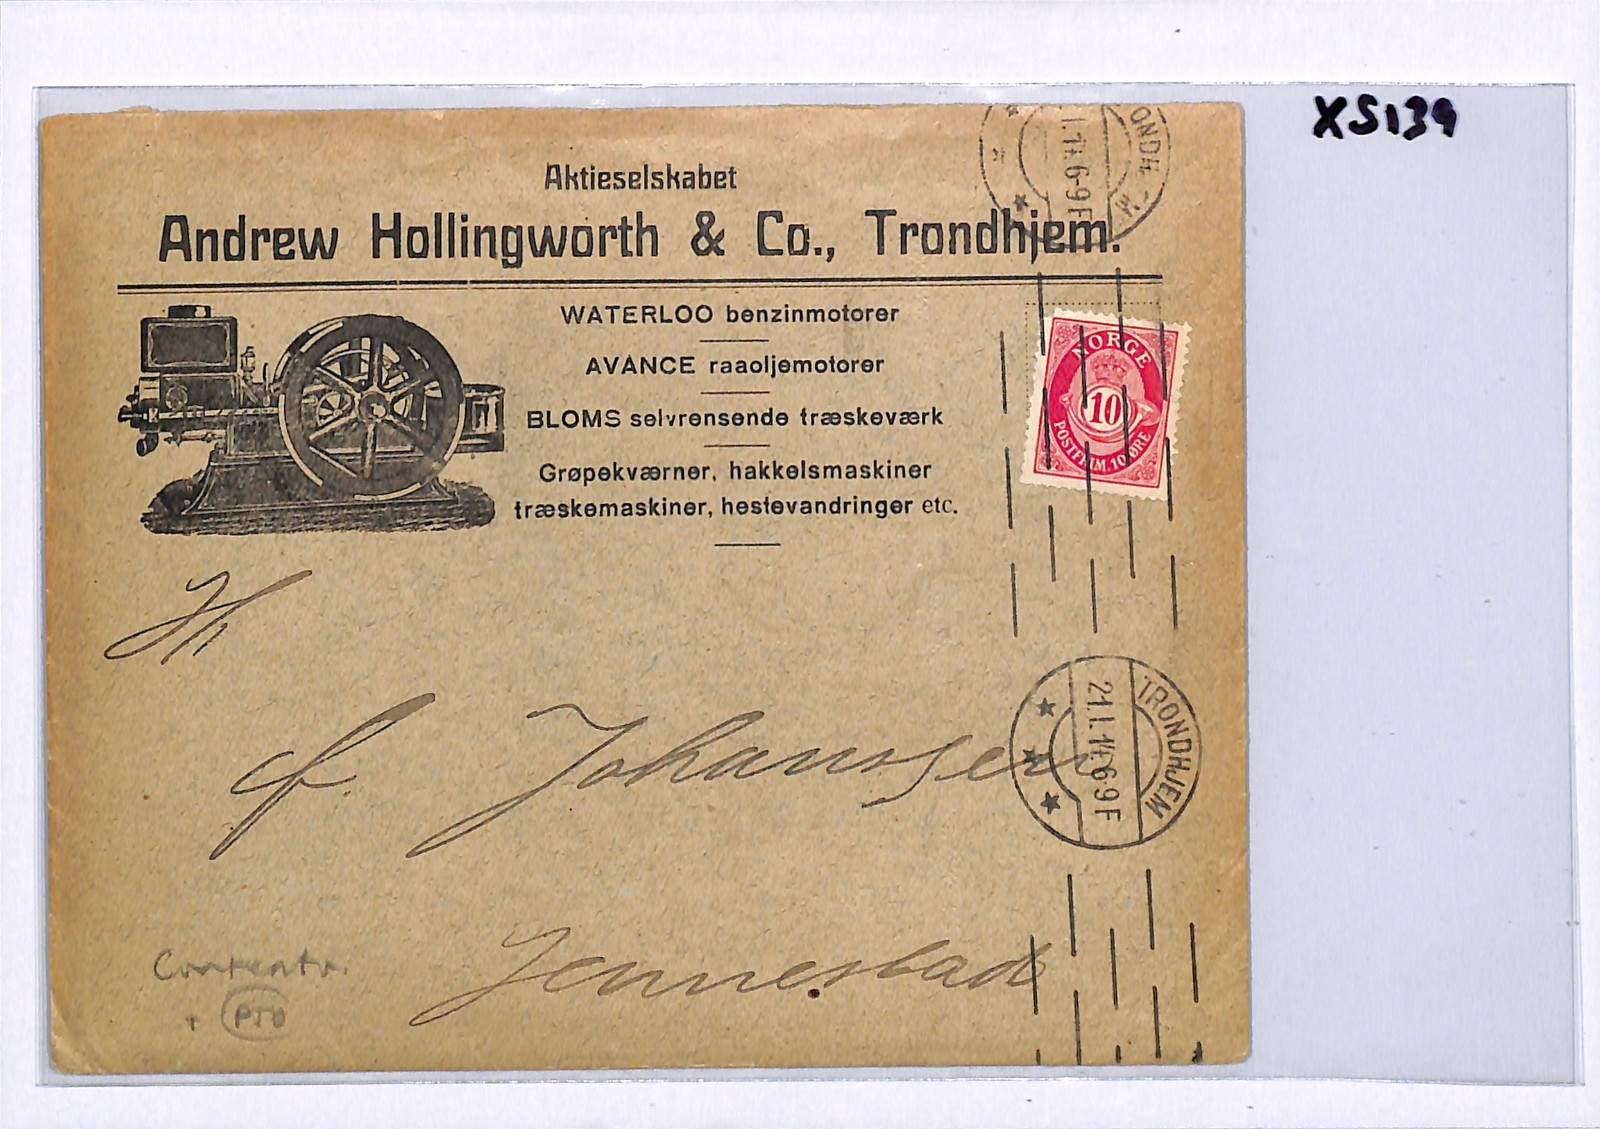 XS139
Aktieselskabet
Andrew Hollingworth & Co., Trondhjem.
WATERLOO benzinmotorer
AVANCE raaoljemotorer
BLOMS selvrensende træskeværk
Grøpekværner, hakkelsmaskiner
træskemaskiner, hestevandringer etc.
NORGE
10
POSTFRIM. 10 ØRE
ONDH
M
I. 11. 6-9 F
Hr
J. Johanssen
Jennestad
TRONDHJEM
21. I. 11. 6-9 F
Contents.
+ PTO